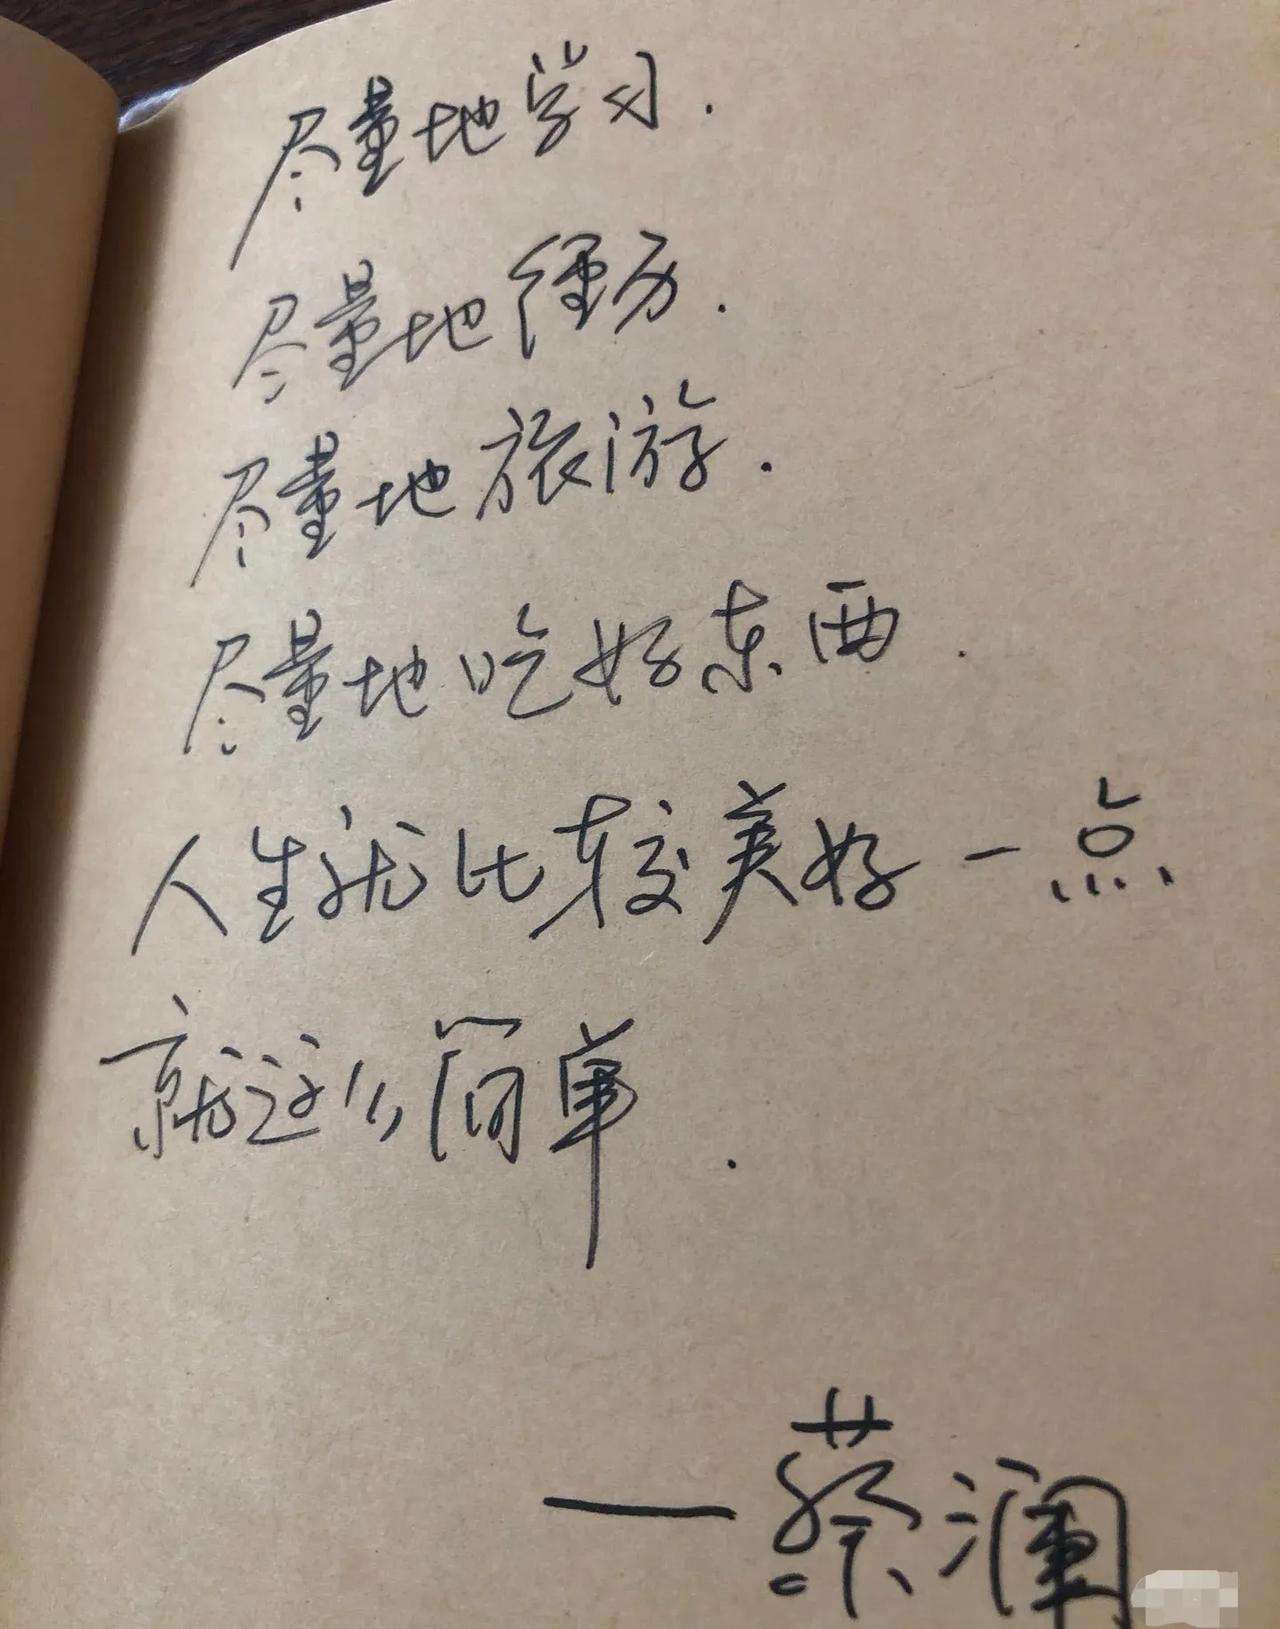 尽量地学习.
尽量地经历.
尽量地旅游.
尽量地吃好东西.
人生就比较美好一点
就这么简单.
—蔡澜